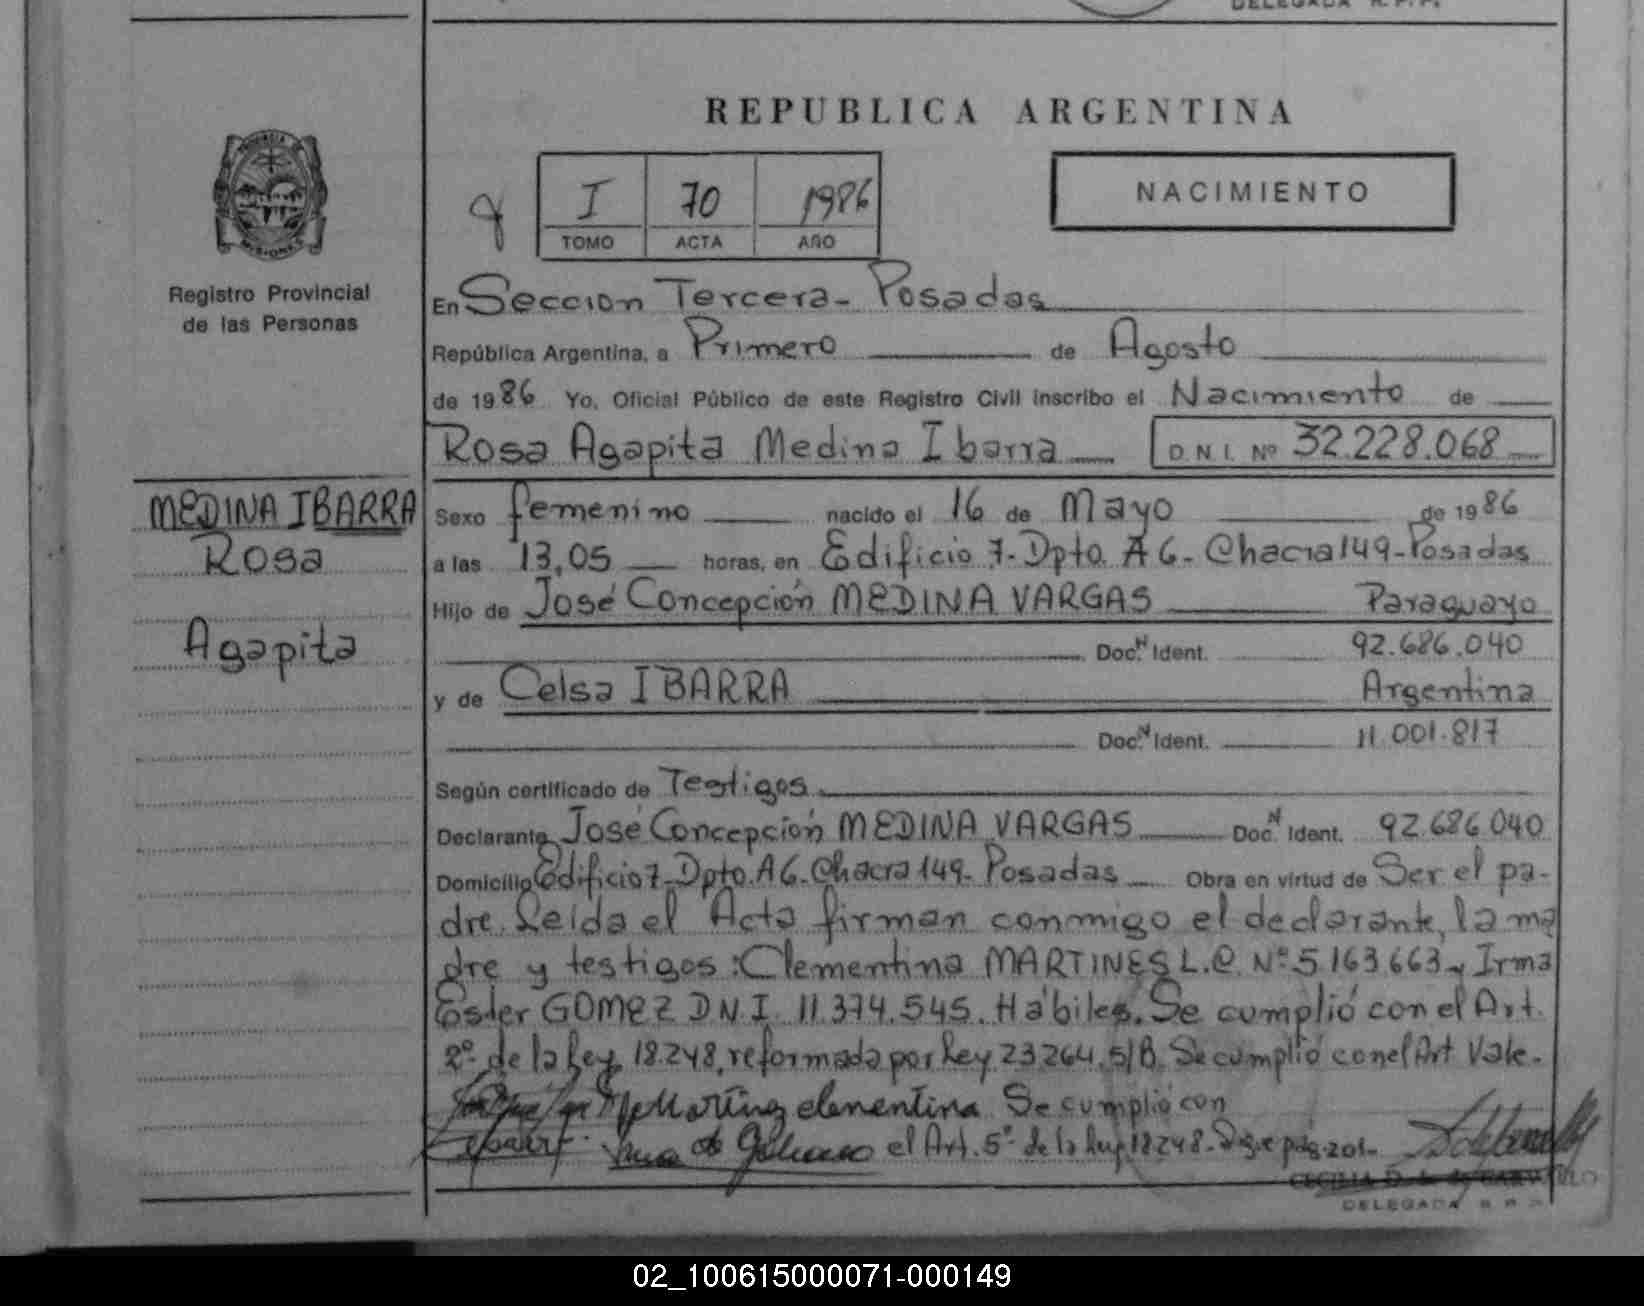 DELEGADA R.P.P.
REPUBLICA ARGENTINA
PROVINCIA DE
MISIONES
Registro Provincial
de las Personas
I 70 1986
TOMO ACTA AÑO
NACIMIENTO
En Seccion Tercera- Posadas
República Argentina, a Primero de Agosto
de 1986 Yo, Oficial Público de este Registro Civil inscribo el Nacimiento de
Rosa Agapita Medina Ibarra D.N.I. Nº 32.228.068
MEDINA IBARRA
Rosa
Agapita
Sexo femenino nacido el 16 de Mayo de 1986
a las 13,05 horas, en Edificio 7- Dpto. A 6- Chacra 149- Posadas
Hijo de José Concepción MEDINA VARGAS Paraguayo
Doc. N Ident. 92.686.040
y de Celsa IBARRA Argentina
Doc. N Ident. 11.001.817
Según certificado de Testigos
Declarante José Concepción MEDINA VARGAS Doc. N Ident. 92.686.040
Domicilio Edificio 7- Dpto. A 6- Chacra 149- Posadas Obra en virtud de Ser el pa-
dre. Leída el Acta firman conmigo el declarante, la ma
dre y testigos: Clementina MARTINES L.C. Nº 5.163.663 y Irma
Ester GOMEZ D.N.I. 11.374.545. Hábiles. Se cumplió con el Art.
2º de la Ley 18.248, reformada por Ley 23.264. S/B. Se cumplió con el Art Vale.
Martinez clementina Se cumplió con
el Art. 5º de la Ley 18248- Sigue pág 201-
CECILIA D.
DELEGADA R.P.P.
02_100615000071-000149